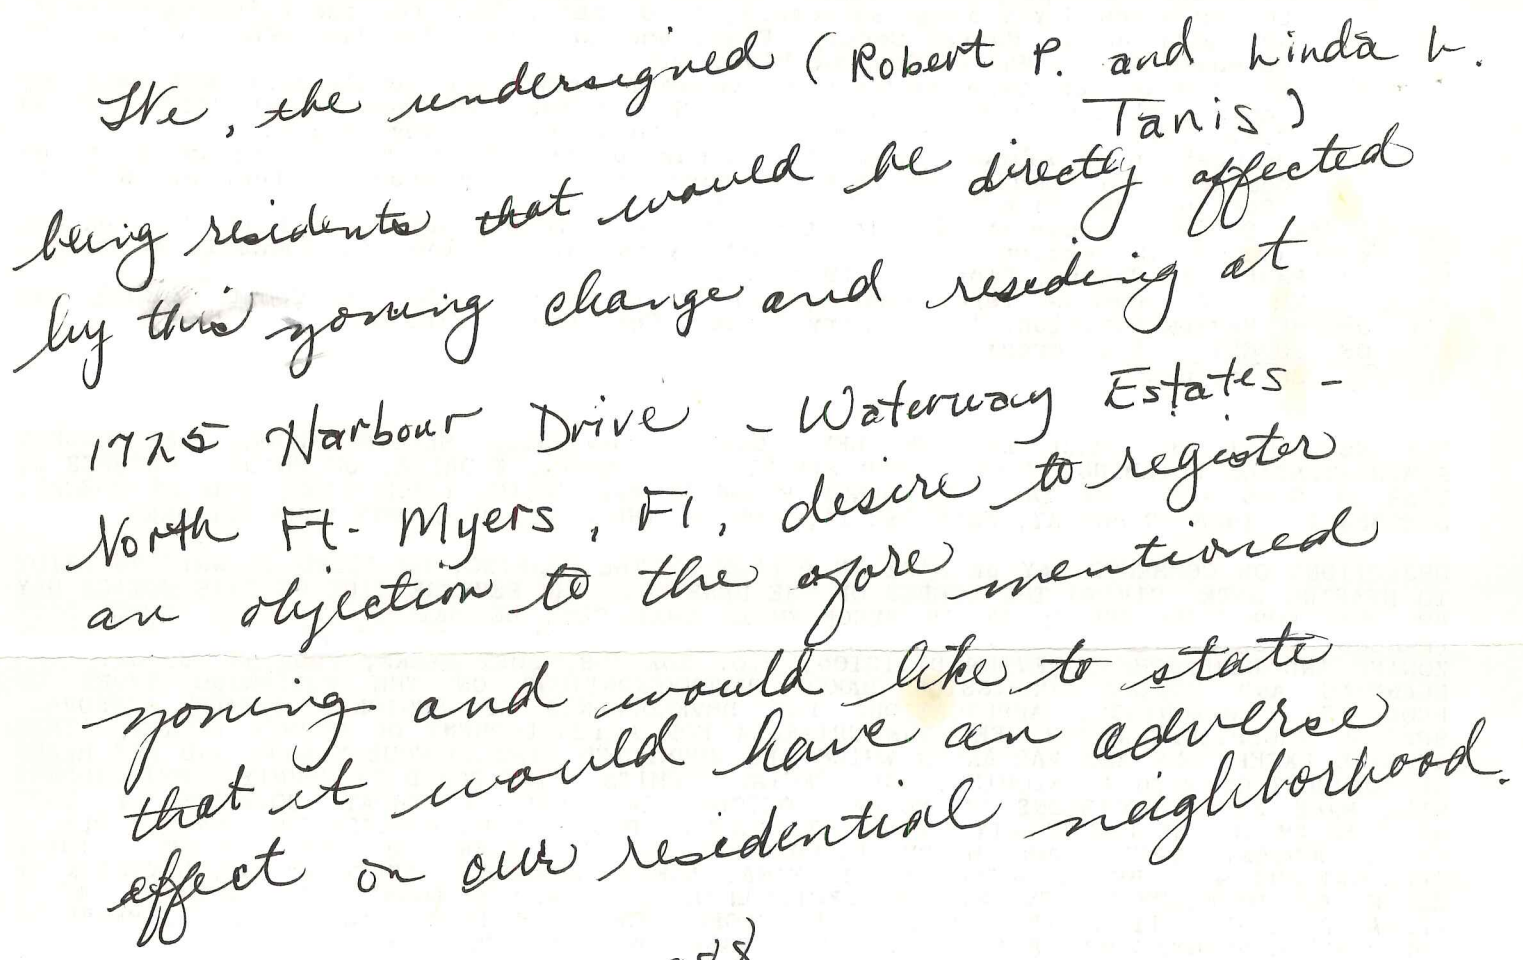 We, the undersigned (Robert P. and Linda L.
Tanis)
being residents that would be directly affected
by this zoning change and residing at
1725 Harbour Drive - Waterway Estates -
North Ft. Myers, Fl, desire to register
an objection to the afore mentioned
zoning and would like to state
that it would have an adverse
effect on our residential neighborhood.